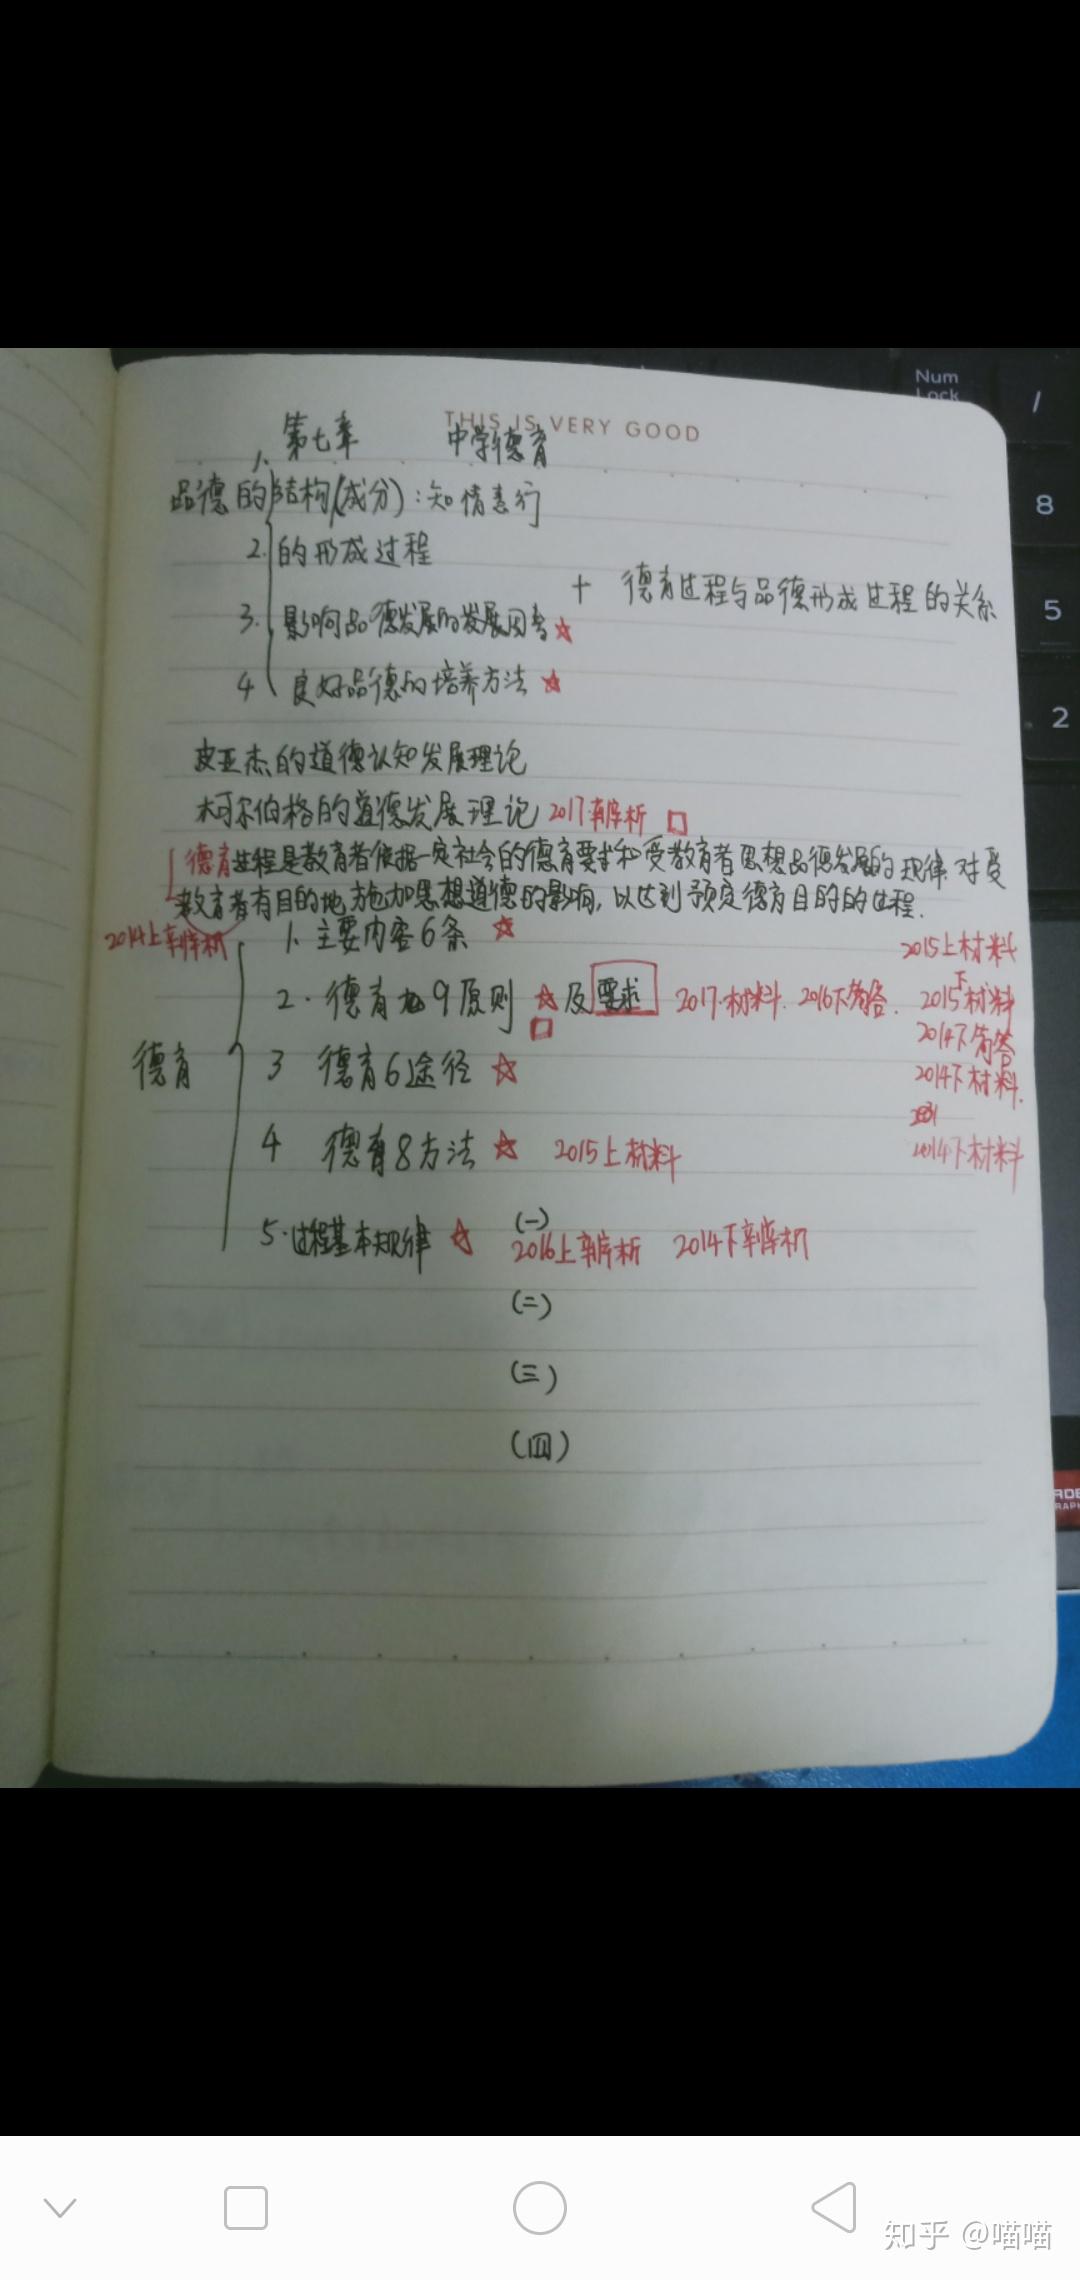 Num
Lock
/
THIS IS VERY GOOD
第七章 中学德育
8
1.
品德的结构(成分):知情意行
2. 的形成过程
+ 德育过程与品德形成过程的关系
5
3. 影响品德发展的发展因素☆
4 良好品德的培养方法☆
2
皮亚杰的道德认知发展理论
柯尔伯格的道德发展理论 2017.辨析 □
德育过程是教育者依据一定社会的德育要求和受教育者思想品德发展的规律.对受
教育者有目的地施加思想道德的影响,以达到预定德育目的的过程.
2014上辨析
1. 主要内容6条 ☆
2015上材料
2. 德育 9原则 ☆ 及要求 2017.材料. 2016下简答. 2015下材料
□
2014下简答
德育
3 德育6途径 ☆
2014下材料.
4 德育8方法 ☆ 2015上材料
2014下材料
5.过程基本规律 ☆ (一)
2016上辨析 2014下辨析
(二)
(三)
(四)
知乎 @喵喵